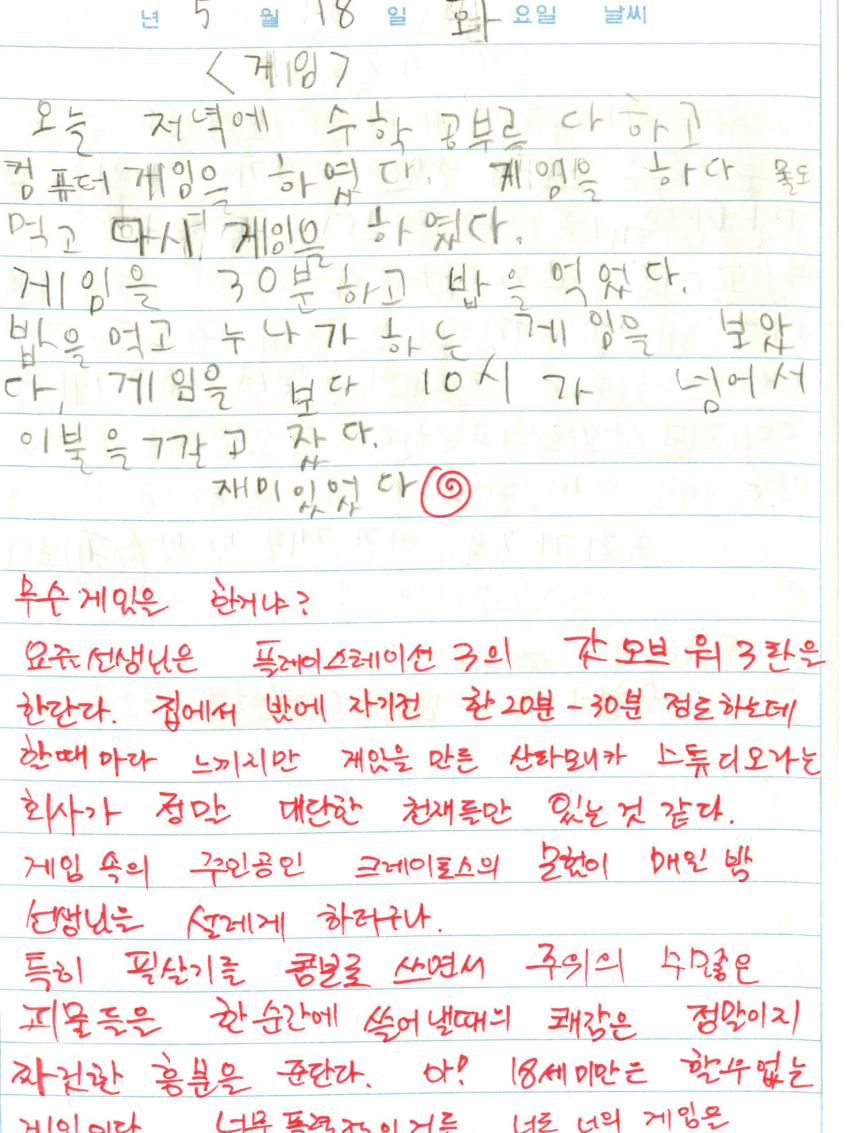 년 5 월 18 일 화 요일 날씨
<게임>
오늘 저녁에 수학 공부를 다 하고
컴퓨터 게임을 하였다. 게임을 하다 물도
먹고 다시 게임을 하였다.
게임을 30분하고 밥을 먹었다.
밥을 먹고 누나가 하는 게임을 보았
다. 게임을 보다 10시가 넘어서
이불을 깔고 잤다.
재미있었다
무슨 게임을 한거냐?
요즘 선생님은 플레이스테이션 3의 갓 오브 워 3 탄을
한단다. 집에서 밤에 자기전 한 20분-30분 정도 하는데
할때 마다 느끼지만 게임을 만든 산타모니카 스튜디오라는
회사가 정말 대단한 천재들만 있는 것 같다.
게임 속의 주인공인 크레이토스의 모험이 매일 밤
선생님을 설레게 하더구나.
특히 필살기를 콤보로 쓰면서 주위의 수많은
괴물들을 한 순간에 쓸어 낼때의 쾌감은 정말이지
짜릿한 흥분을 준단다. 아! 18세미만은 할수 없는
게임이다 너무 폭력적이거든 너도 너의 게임을